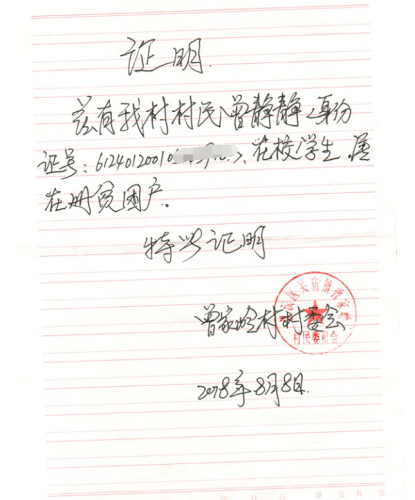 证明
兹有我村村民曾静静,身份
证号:6124012001 在校学生,属
在册贫困户.
特以证明
曾家岭村村委会
村民委员会
2018年8月8日.